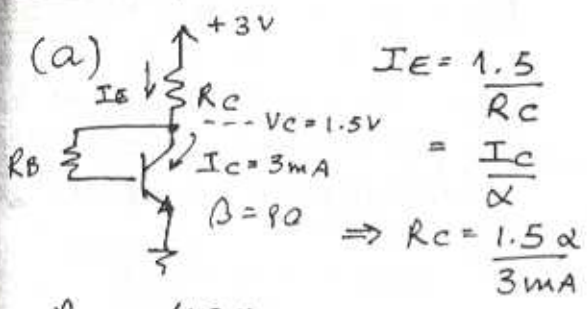 (a)
+3V
IE
RC
--- VC = 1.5V
RB
IC = 3mA
β = 90
IE = 1.5 / RC
= IC / α
⇒ RC = 1.5 α / 3mA